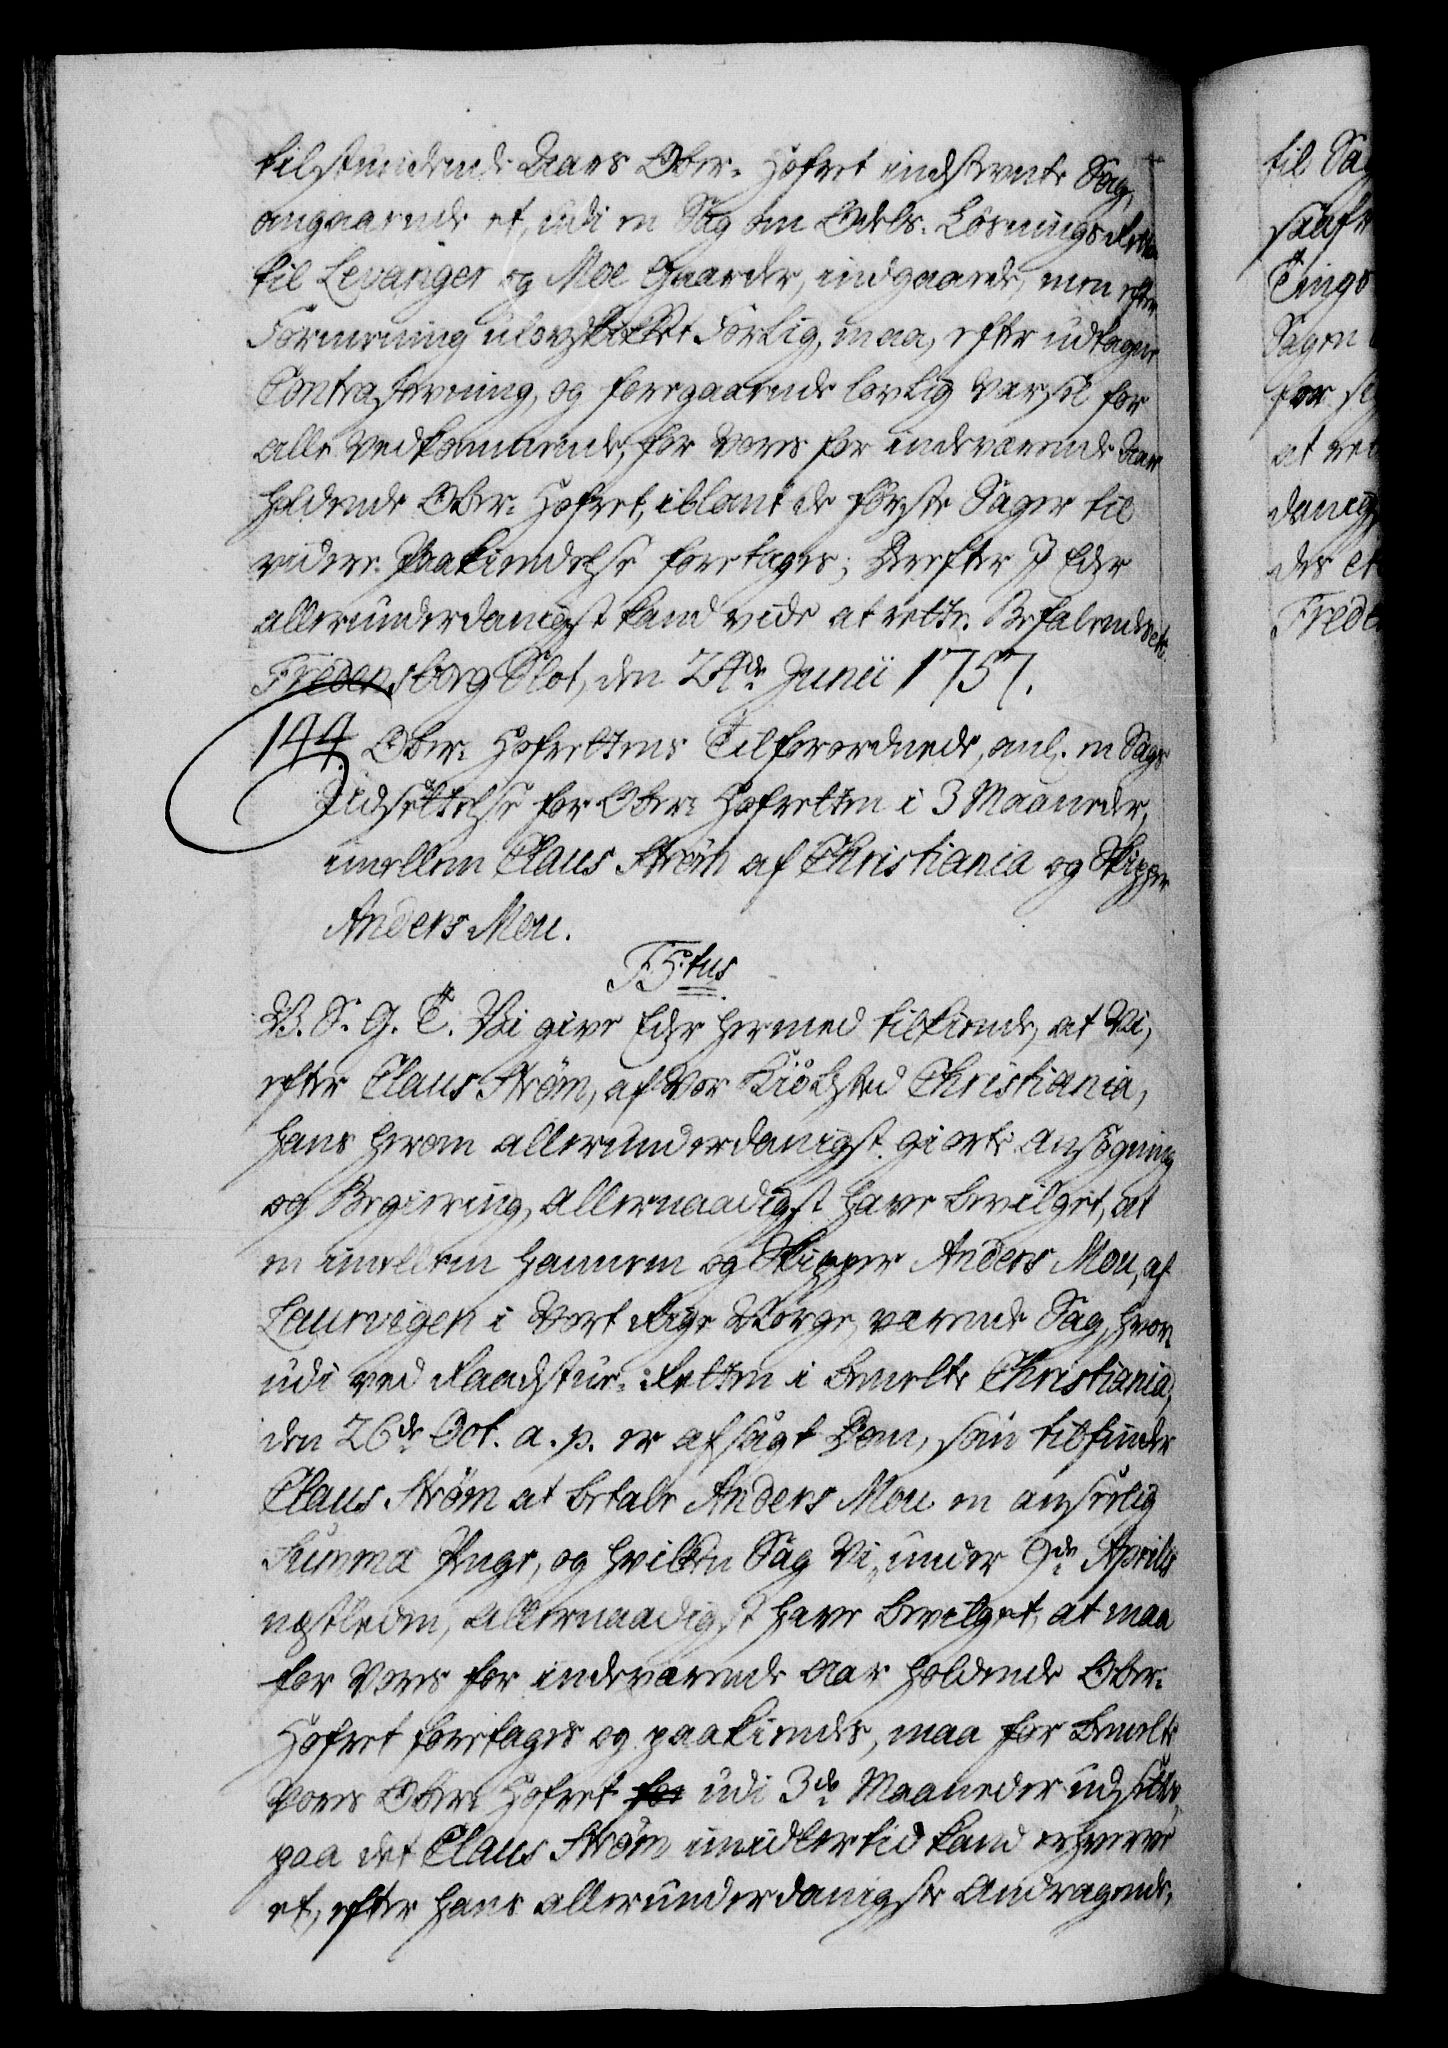 tilstundende Aars Ober-Hofret indstevnte Sag,
angaaende et, udi en Sag om Odels-Løsnings Retten
til Levanger og Moe Gaarder, indgaaede, men efter
Formening ulovskikket Forlig, maa, efter udtagen
Contrastevning, og foregaaende lovlig Varsel for
alle Vedkommende, for Vores for indeværende Aar
holdende Ober-Hofret, iblant de første Sager til
videre Paakiendelse foretages; Derefter I Eder
allerunderdanigst kand vide at rette. Befalendes etc.
Fredensborg Slot, den 24de Junii 1757.
144. Ober-Hofrettens Tilforordnede, anl. en Sags
Udsættelse for Ober-Hofretten i 3 Maaneder,
imellem Claus Strøm af Christiania og Skipper
Anders Mou.
F5tus
V. S. G. T. Vi give Eder hermed tilkiende, at Vi,
efter Claus Strøm, af Vor Kiøbsted Christiania,
hans herom allerunderdanigst giorte Ansøgning
og Begiering, allernaadigst have bevilget, at
en imellem hannem og Skipper Anders Mou, af
Laurvigen i Vort Rige Norge, værende Sag, hvor-
udi ved Raadstue-Retten i bemelte Christiania,
den 26de Oct. a. p. er afsagt Dom, som tilfinder
Claus Strøm at betale Anders Mou en anseelig
Summa Penge, og hvilken Sag Vi, under 9de Aprilis
nestleden, allernaadigst have bevilget, at maa
for Vores for indeværende Aar holdende Ober-
Hofret foretages og paakiendes, maa for bemelte
Vores Ober-Hofret for udi 3de Maaneder udsættes,
paa det Claus Strøm imidlertid kand erhverve
et, efter hans allerunderdanigste Andragende,